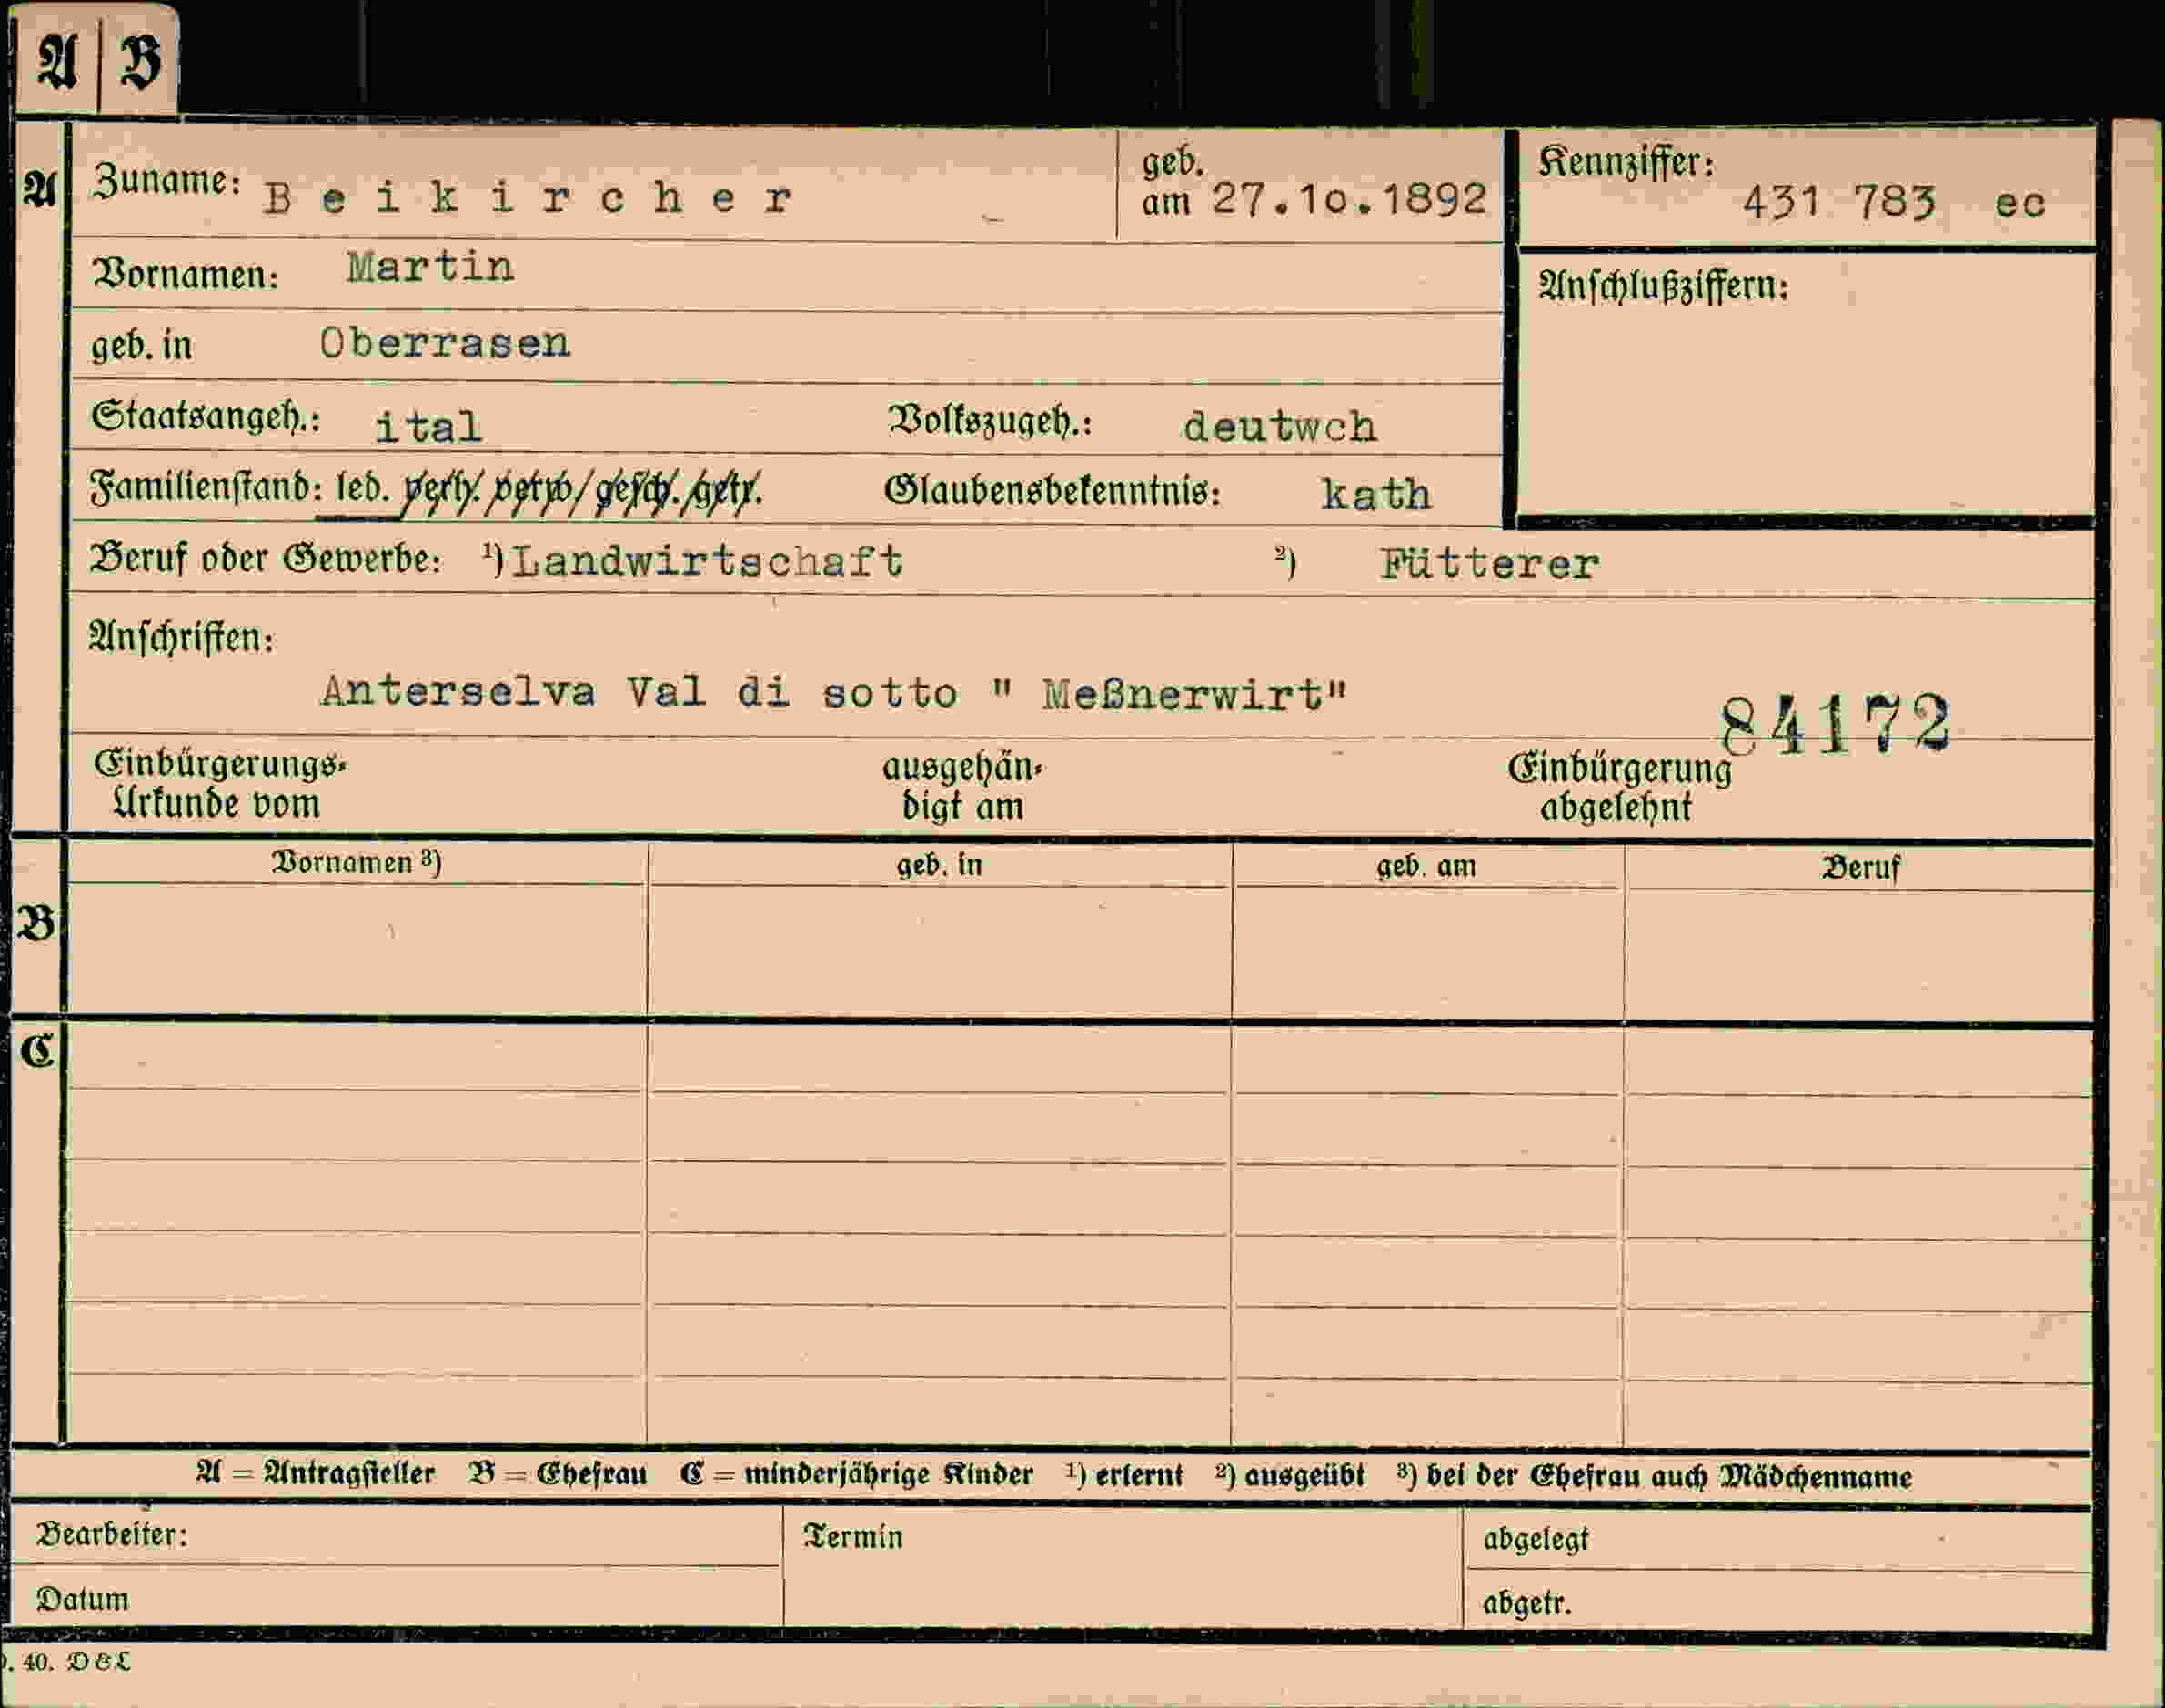 A B
A Zuname: Beikircher geb. am 27.10.1892 Kennziffer: 431 783 ec
Vornamen: Martin Anschlußziffern:
geb. in Oberrasen
Staatsangeh.: ital Volkszugeh.: deutwch
Familienstand: led. verh. verw. gesch. getr. Glaubensbekenntnis: kath
Beruf oder Gewerbe: ¹) Landwirtschaft ²) Fütterer
Anschriften:
Anterselva Val di sotto " Meßnerwirt"
84172
Einbürgerungs- ausgehän- Einbürgerung
Urkunde vom digt am abgelehnt
Vornamen ³) geb. in geb. am Beruf
B
C
A = Antragsteller B = Ehefrau C = minderjährige Kinder ¹) erlernt ²) ausgeübt ³) bei der Ehefrau auch Mädchenname
Bearbeiter: Termin abgelegt
Datum abgetr.
. 40. D & L